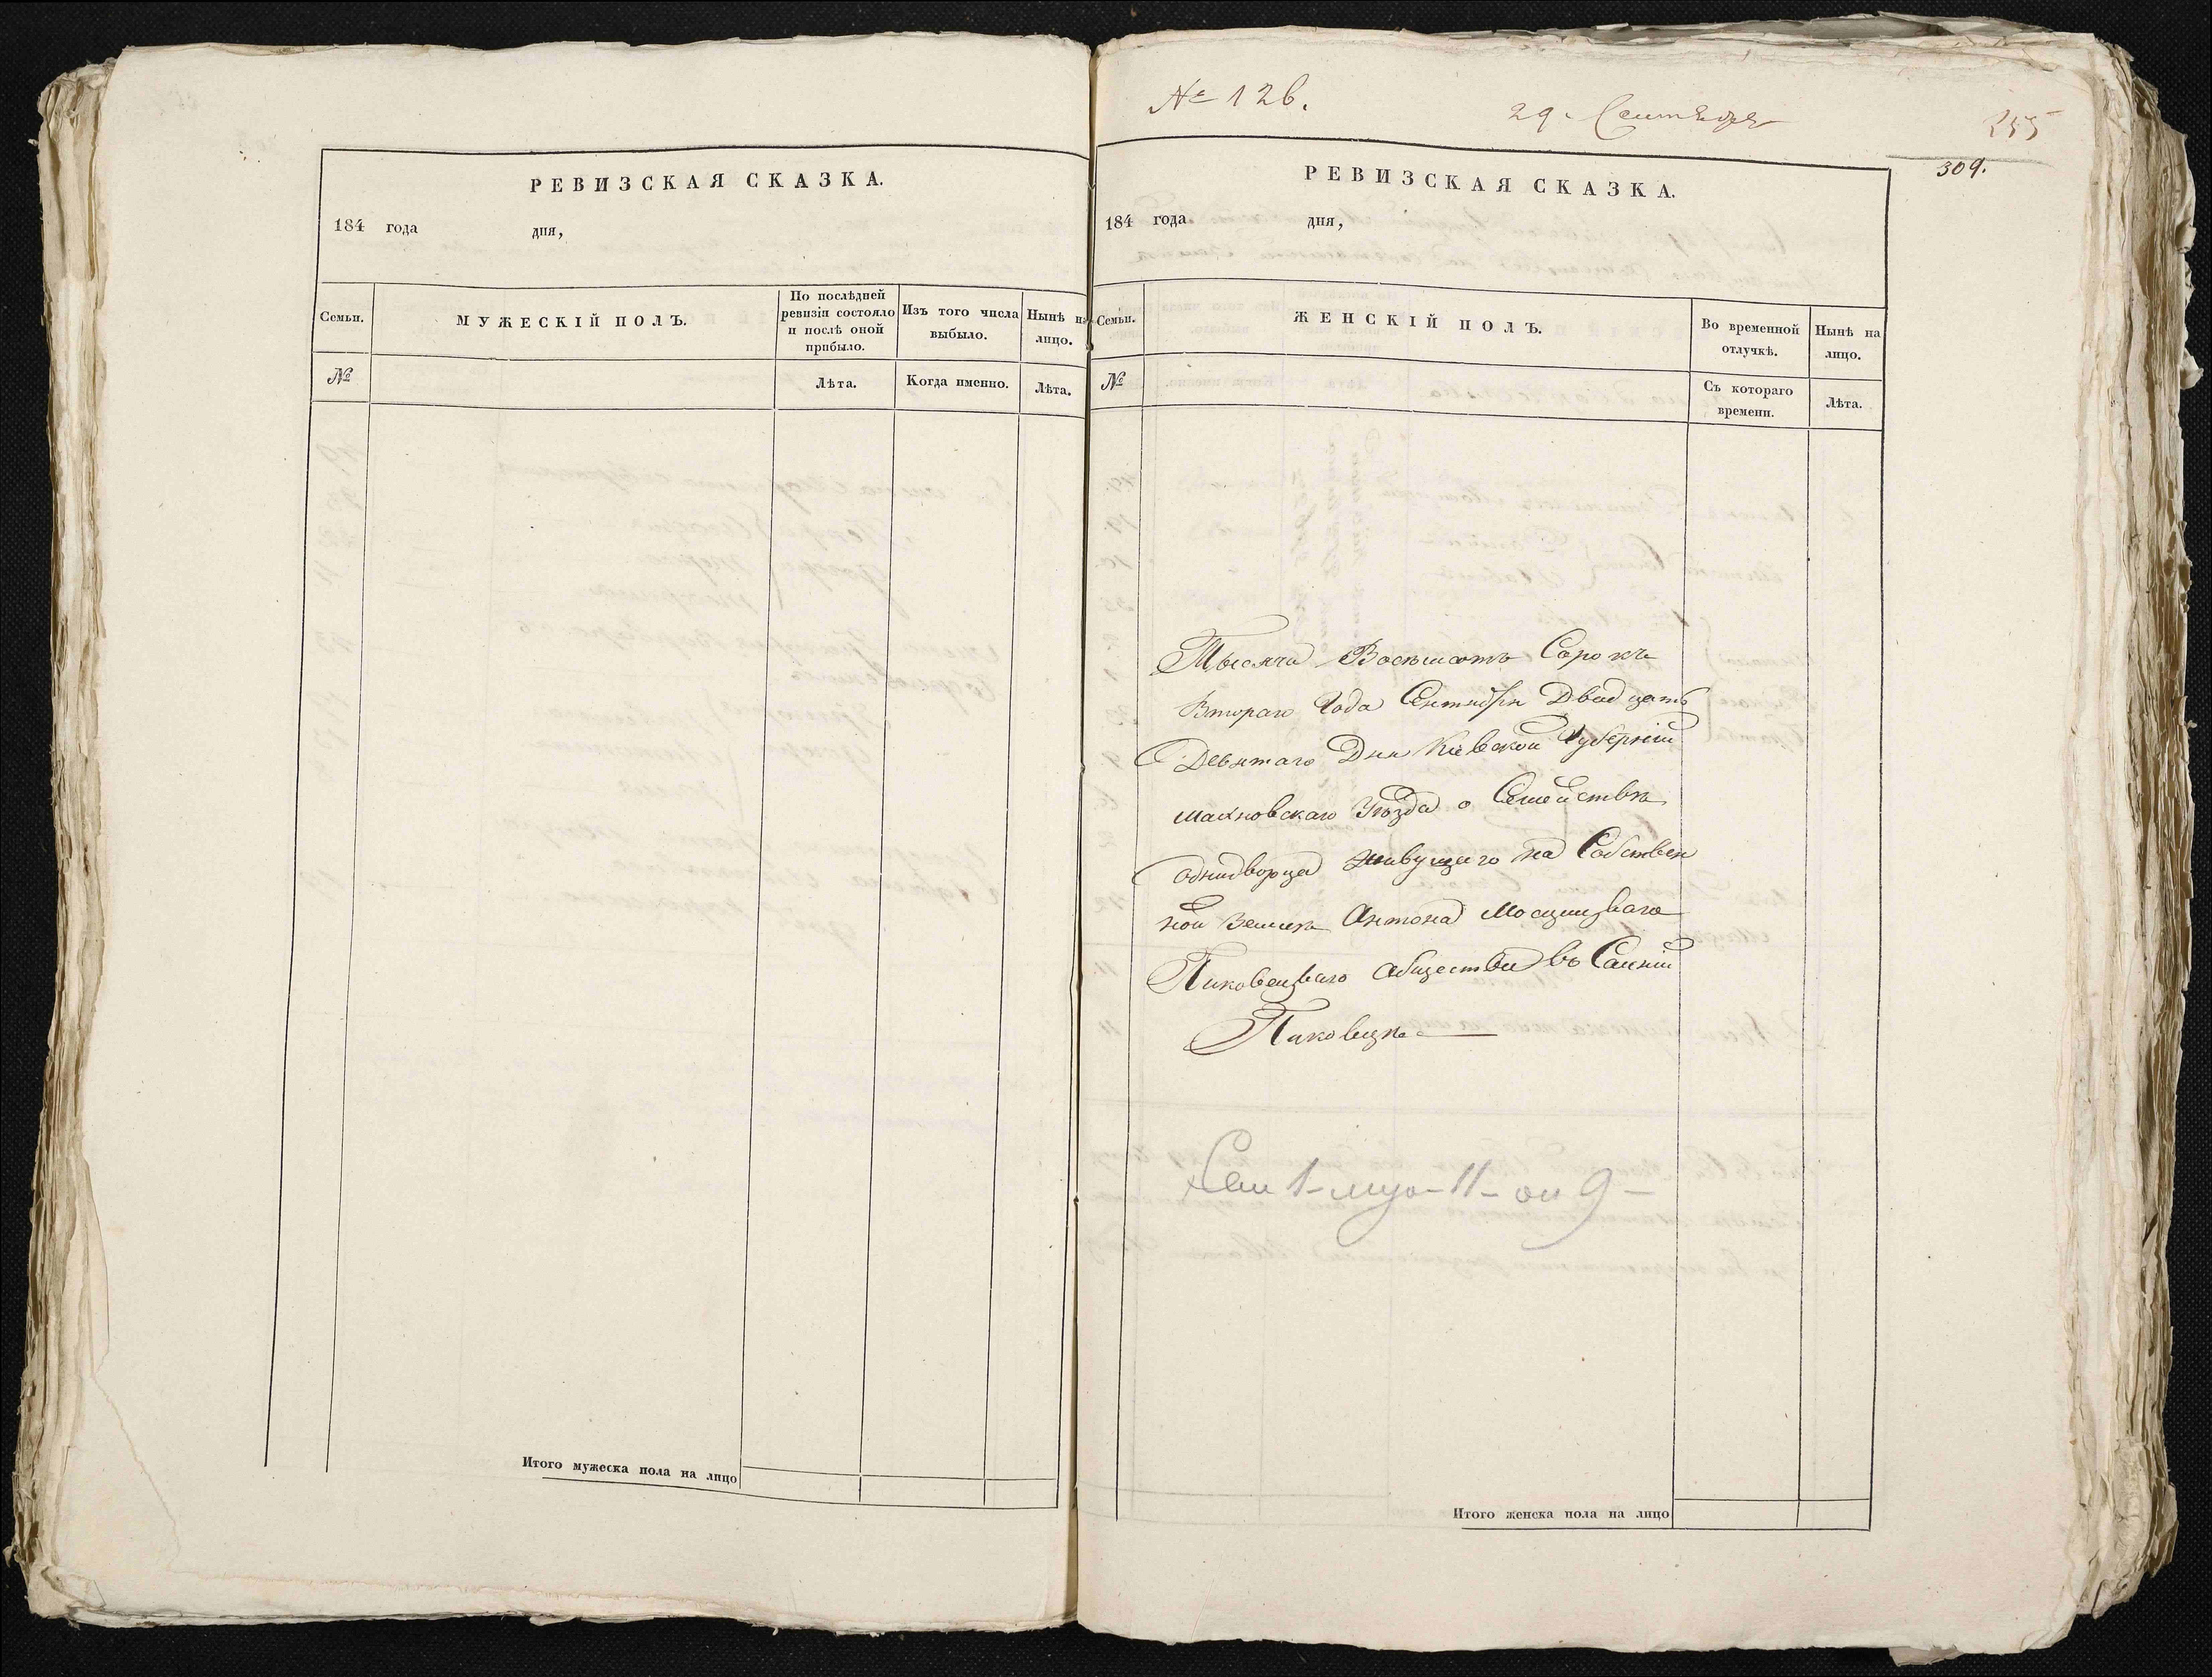 РЕВИЗСКАЯ СКАЗКА.
184 года дня,
Семьи.
МУЖЕСКІЙ ПОЛЪ.
По послѣдней
ревизіи состояло
и послѣ оной
прибыло.
Изъ того числа
выбыло.
Нынѣ на
лицо.
№
Лѣта.
Когда именно.
Лѣта.
Итого мужеска пола на лицо
№ 126.
29. Сентября
255
309.
РЕВИЗСКАЯ СКАЗКА.
184 года дня,
Семьи.
ЖЕНСКІЙ ПОЛЪ.
Во временной
отлучкѣ.
Нынѣ на
лицо.
№
Съ котораго
времени.
Лѣта.
Тысяча Восемьсотъ Сорокъ
Втораго Года Сентября Двадцать
Девятаго Дня Кіевской Губерніи
Махновскаго Уѣзда о Семействѣ
Однодворца живущаго на Собствен
ной Землѣ Антона
Пиковецкаго Общества въ
Пиковцѣ
Сем 1 - муж - 11 - 9 -
Итого женска пола на лицо